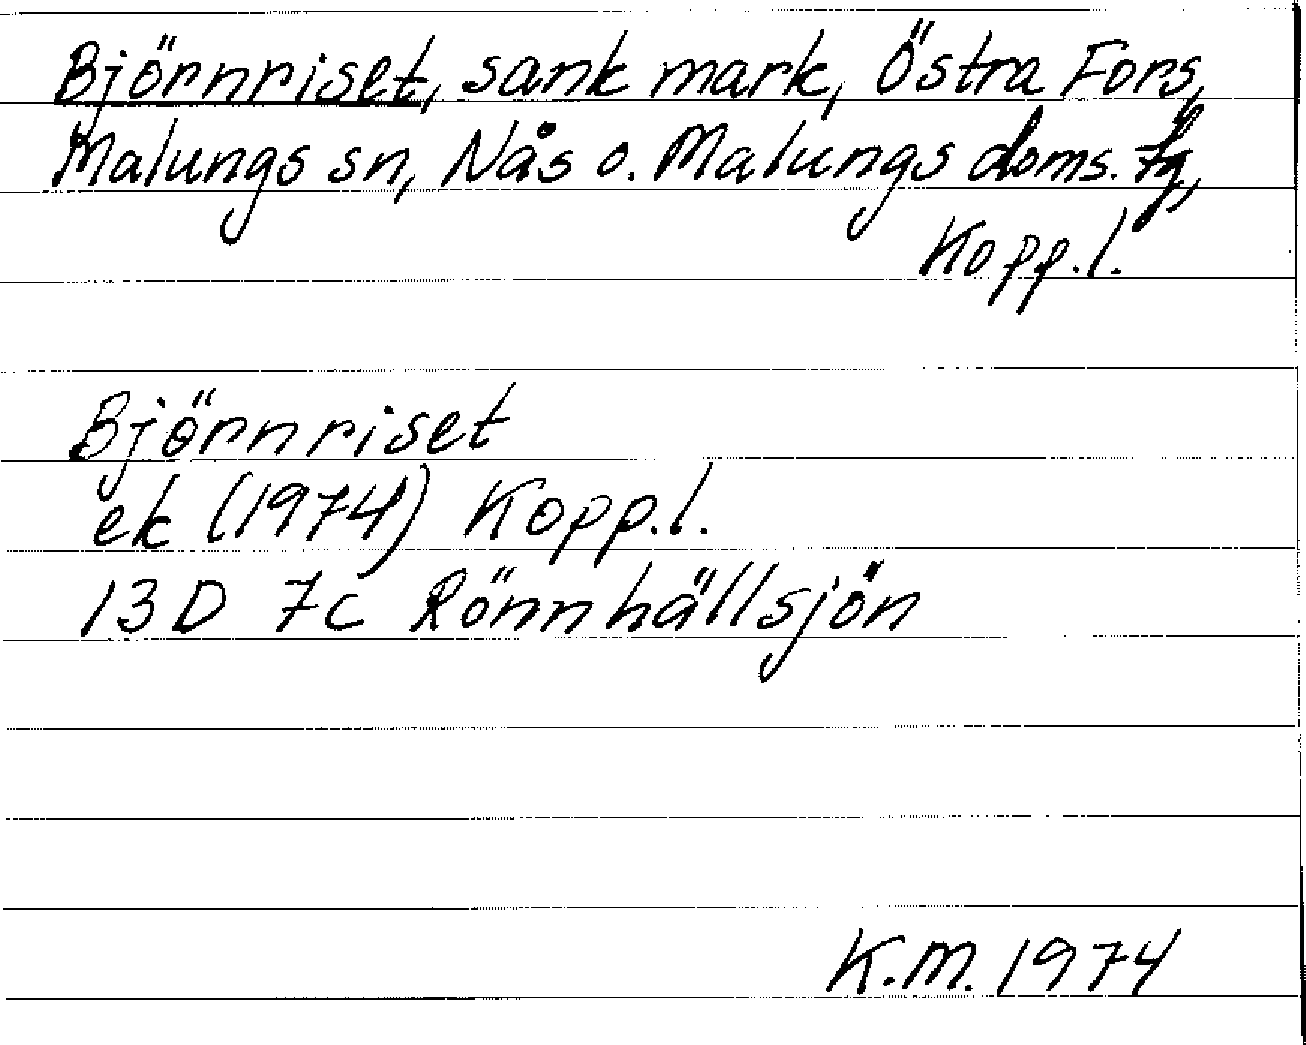 Björnriset, sank mark, Östra Fors,
Malungs sn, Nås o. Malungs doms.
Kopp.l.
Björnriset
ek (1974) Kopp.l.
13D 7c Rönnhällsjön
K.M. 1974